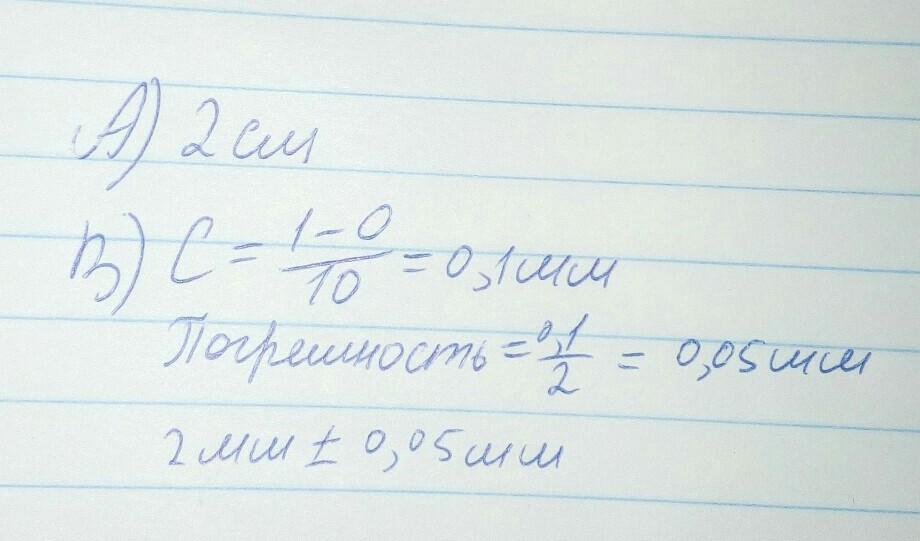 А) 2 см
В) С = 1-0/10 = 0,1 мм
Погрешность = 0,1/2 = 0,05 мм
2 мм ± 0,05 мм